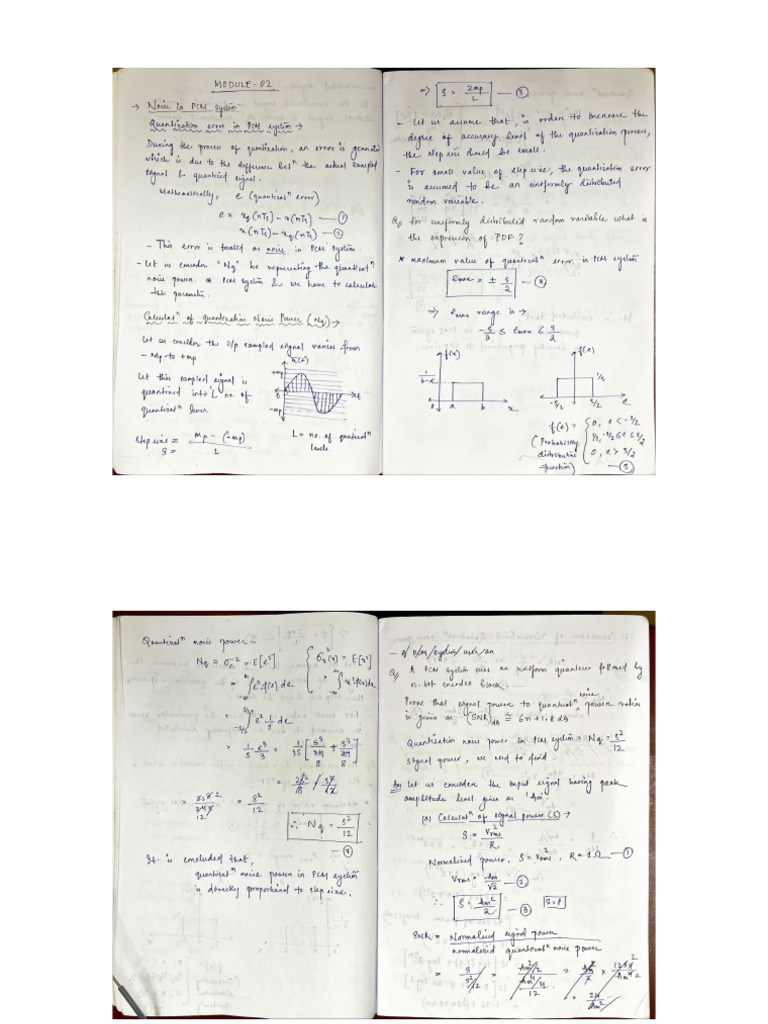 MODULE-02
→ Noise in PCM system
Quantization error in PCM system →
During the process of quantization, an error is generated
which is due to the difference betⁿ the actual sampled
signal & quantized signal.
Mathematically, e (quantizatⁿ error)
e = xq(nTs) - x(nTs) — ①
x(nTs) - xq(nTs) — ②
- This error is treated as noise in PCM system.
- Let us consider "Nq" be representing the quantizatⁿ
noise power in PCM system & we have to calculate
this parameter.
Calculatⁿ of quantization Noise Power (Nq) →
Let us consider the i/p sampled signal varies from
-mp to +mp
Let this sampled signal is
quantized into 'L' no. of
quantizatⁿ level
x(t)
+mp
0
-mp
t
step size = mp - (-mp)
S = L
L = no. of quantizatⁿ
levels
⇒ S = 2mp / L — ③
- Let us assume that, in order to increase the
degree of accuracy level of the quantization process,
the step size should be small.
- For small value of step size, the quantization error
is assumed to be an uniformly distributed
random variable.
Q) for uniformly distributed random variable what is
the expression of PDF?
* maximum value of quantizatⁿ error in PCM system
emax = ± S/2 — ④
⇒ emax range is →
-S/2 ≤ emax ≤ S/2
f(x)
1/b-a
0 a b x
f(e)
1/s
-S/2 S/2 e
f(e) = { 0, e < -S/2
1/s, -S/2 ≤ e ≤ S/2
0, e > S/2
— ⑤
(Probability
distributive
function)
Quantizatⁿ noise power -
Nq = σe² = E[e²]
{ σx²(x) = E[x²]
= ∫ e² f(e) de
= ∫ x² f(x) dx
= ∫ e² 1/s de
-S/2
= 1/s e³/3 = 1/3s [ s³/8 + s³/8 ]
= s²/12
∴ Nq = s²/12
— ⑦
It is concluded that,
quantizatⁿ noise power in PCM system
is directly proportional to step size.
Q) A PCM system uses an uniform quantizer followed by
n-bit encoder block.
Prove that signal power to quantizatⁿ noise power ratio
is given as (SNR)dB ≅ 6n + 1.8 dB
Quantization noise power in PCM system = Nq = s²/12
signal power, we need to find.
Ans Let us consider the input signal having peak
amplitude level given as 'Am'
(a) Calculatⁿ of signal power (S) →
S = Vrms² / R
Normalized power, S = Vrms², R = 1Ω — ①
Vrms = Am/√2 — ②
∴ S = Am²/2 — ③
SNR = Normalized signal power
normalized quantizatⁿ noise power